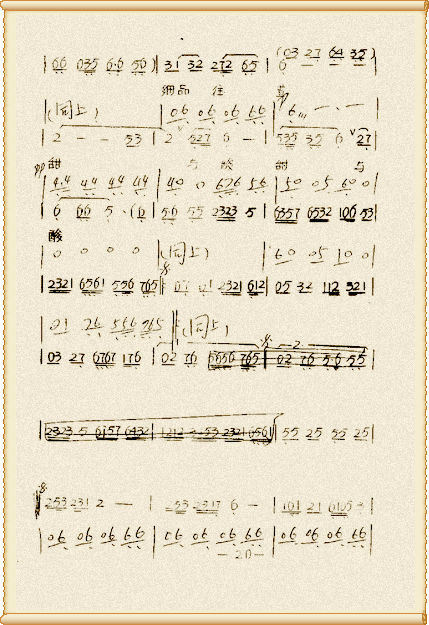 66 035 6·6 56 | 31 32 272 65 | (03 27 64 35
6 — — —
细品 往 事
(同上) | 06 06 06 66 | 6,,, — · —
2 — — 53 | 2 527 6 — | 535 35 6 27
甜 与 酸 甜 与
pp 4.4 44 44 44 | 40 0 676 56 | 50 05 60 0
6 66 5 · (6 | 56 55 2323 5 | 6357 6532 106 53
酸
0 0 0 0 | (同上) | 60 05 10 0
2321 6561 556 765 | 07 01 2321 612 | 05 32 112 321
01 76 556 765 | (同上)
03 27 6767 176 | 02 76 5656 765 | 02 76 56 55
2323 5 6157 6432 | 1212 2321 6561 | 55 25 55 25
253 231 2 — | 253 2317 6 — | 161 21
06 06 06 66 | 06 06 06 66 | 06 06 06 66
— 20 —